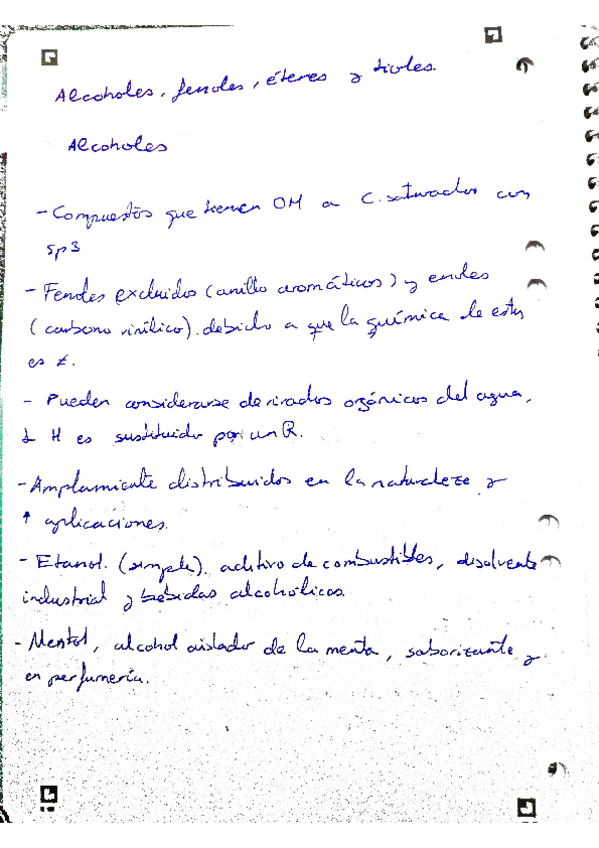 Alcoholes, fenoles, éteres y tioles.
Alcoholes
- Compuestos que tienen OH a C. saturados con
sp3
- Fenoles excluidos (anillo aromáticos) y enoles
(carbono vinílico). debido a que la química de estos
es ≠.
- Pueden considerarse derivados orgánicos del agua,
1 H es sustituido por un R.
- Ampliamente distribuidos en la naturaleza y
↑ aplicaciones.
- Etanol. (simple). aditivo de combustibles, disolvente
industrial y bebidas alcohólicas.
- Mentol, alcohol aislador de la menta, saborizante y
en perfumería.